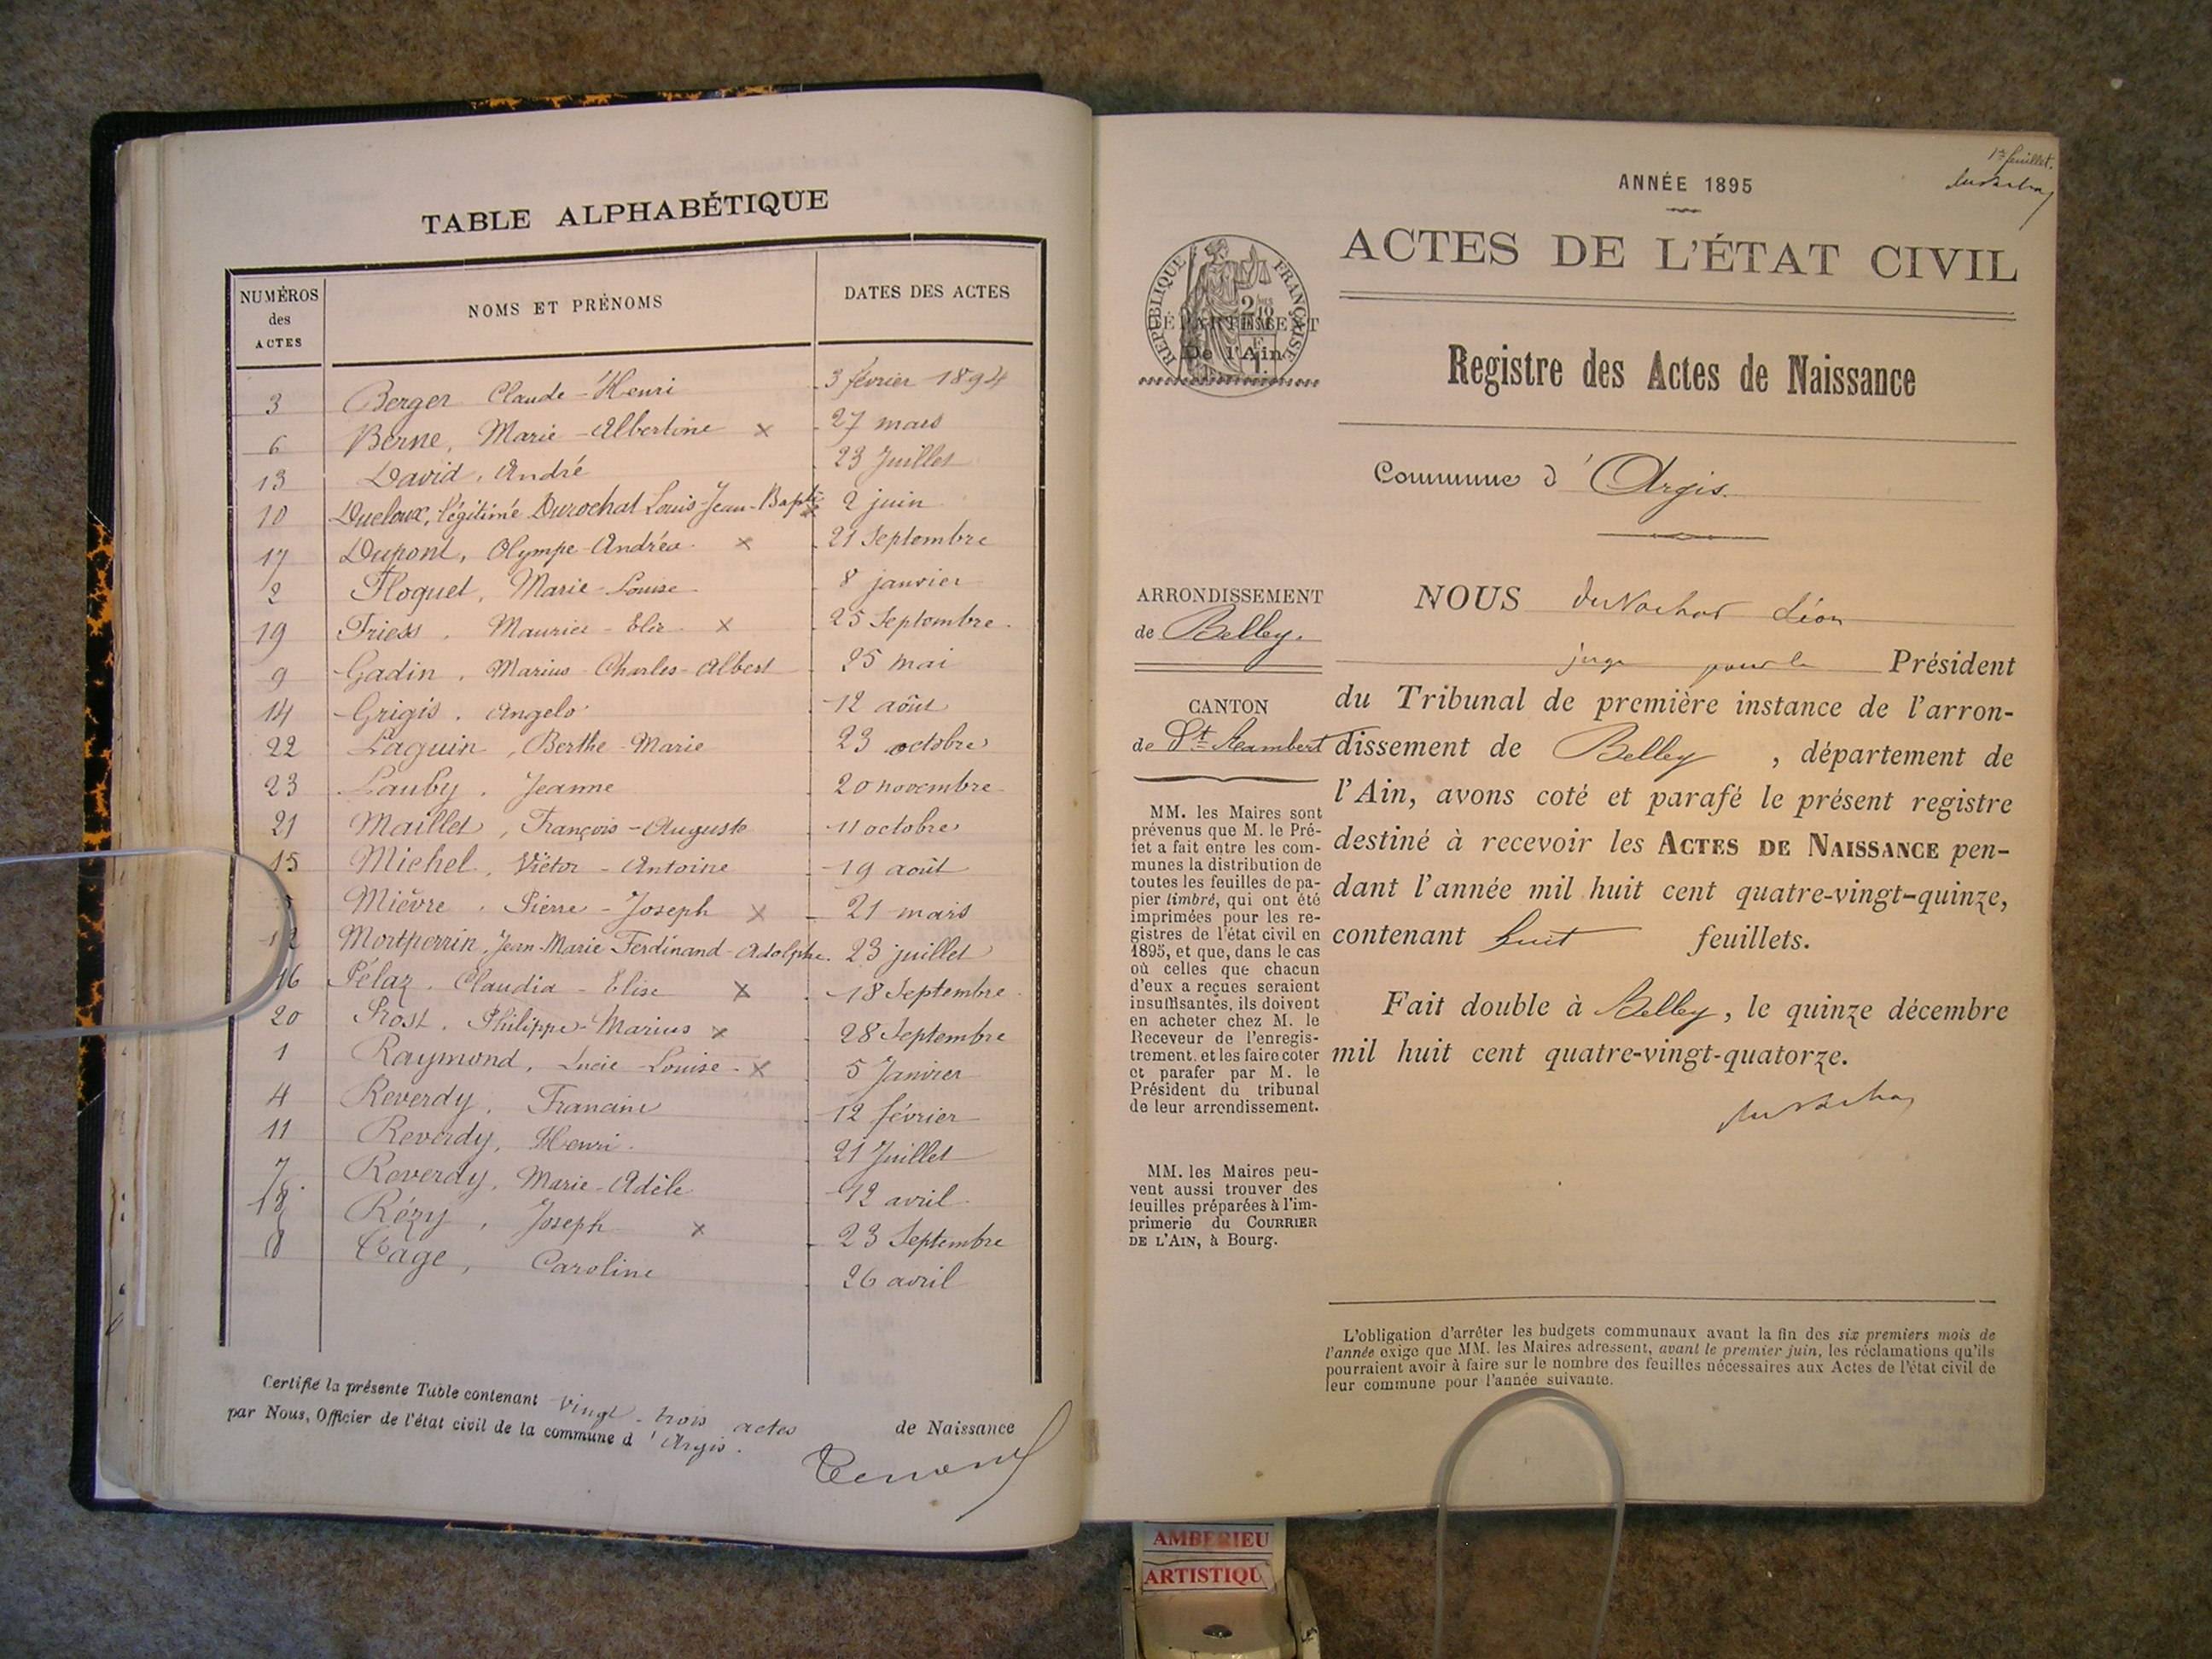 TABLE ALPHABÉTIQUE
NUMÉROS des ACTES NOMS ET PRÉNOMS DATES DES ACTES
3 Berger Claude-Henri 3 février 1894
6 Berne, Marie-Albertine x 27 mars
13 David, André 23 Juillet
10 Ducloux, légitimé Durochat Louis-Jean-Bapte x 2 juin
17 Dupont, Olympe-Andréa x 21 Septembre
2 Floquet, Marie-Louise 8 janvier
19 Friess, Maurice-Elie x 25 Septembre
9 Gadin, Marius-Charles-Albert 25 mai
14 Grigis, Angelo 12 août
22 Laguin, Berthe-Marie 23 octobre
23 Lauby, Jeanne 20 novembre
21 Maillet, François-Auguste 11 octobre
15 Michel, Victor-Antoine 19 août
Mièvre, Pierre-Joseph x 21 mars
12 Mortperrin, Jean-Marie Ferdinand-Adolphe 23 juillet
16 Pélaz, Claudia-Elise x 18 Septembre
20 Prost, Philippe-Marius x 28 Septembre
1 Raymond, Lucie-Louise x 5 Janvier
4 Reverdy, Francine 12 février
11 Reverdy, Henri 21 Juillet
7 Reverdy, Marie-Adèle 12 avril
18 Rézy, Joseph x 23 Septembre
8 Tage, Caroline 26 avril
Certifié la présente Table contenant vingt-trois actes de Naissance
par Nous, Officier de l'état civil de la commune d'Argis.
1er feuillet.
ANNÉE 1895
ACTES DE L'ÉTAT CIVIL
RÉPUBLIQUE FRANÇAISE
DÉPARTEMENT
De l'Ain
Registre des Actes de Naissance
Commune d'Argis.
ARRONDISSEMENT
de Belley.
CANTON
de St Rambert
MM. les Maires sont
prévenus que M. le Pré-
fet a fait entre les com-
munes la distribution de
toutes les feuilles de pa-
pier timbré, qui ont été
imprimées pour les re-
gistres de l'état civil en
1895, et que, dans le cas
où celles que chacun
d'eux a reçues seraient
insuffisantes, ils doivent
en acheter chez M. le
Receveur de l'enregis-
trement, et les faire coter
et parafer par M. le
Président du tribunal
de leur arrondissement.
MM. les Maires peu-
vent aussi trouver des
feuilles préparées à l'im-
primerie du COURRIER
DE L'AIN, à Bourg.
NOUS Durochat Léon
juge pour le Président
du Tribunal de première instance de l'arron-
dissement de Belley, département de
l'Ain, avons coté et parafé le présent registre
destiné à recevoir les ACTES DE NAISSANCE pen-
dant l'année mil huit cent quatre-vingt-quinze,
contenant huit feuillets.
Fait double à Belley, le quinze décembre
mil huit cent quatre-vingt-quatorze.
Durochat
L'obligation d'arrêter les budgets communaux avant la fin des six premiers mois de
l'année exige que MM. les Maires adressent, avant le premier juin, les réclamations qu'ils
pourraient avoir à faire sur le nombre des feuilles nécessaires aux Actes de l'état civil de
leur commune pour l'année suivante.
AMBERIEU
ARTISTIQU